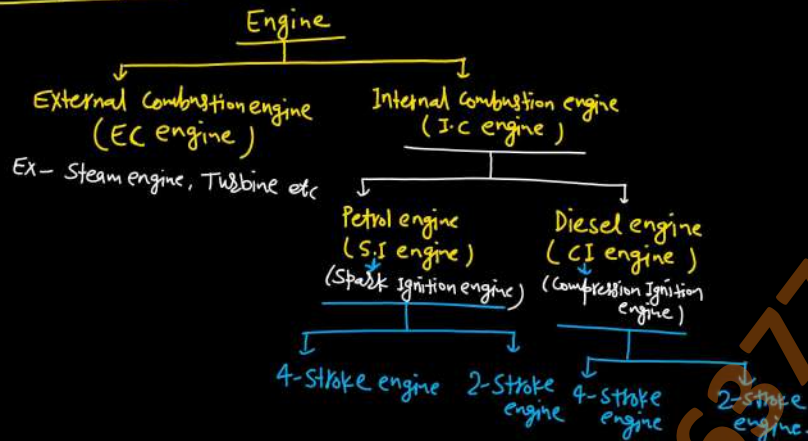 Engine
External Combustion engine
(EC engine)
Ex- Steam engine, Turbine etc
Internal Combustion engine
(I.C engine)
Petrol engine
(S.I engine)
(Spark Ignition engine)
Diesel engine
(CI engine)
(Compression Ignition
engine)
4-Stroke engine
2-Stroke
engine
4-Stroke
engine
2-Stroke
engine
637